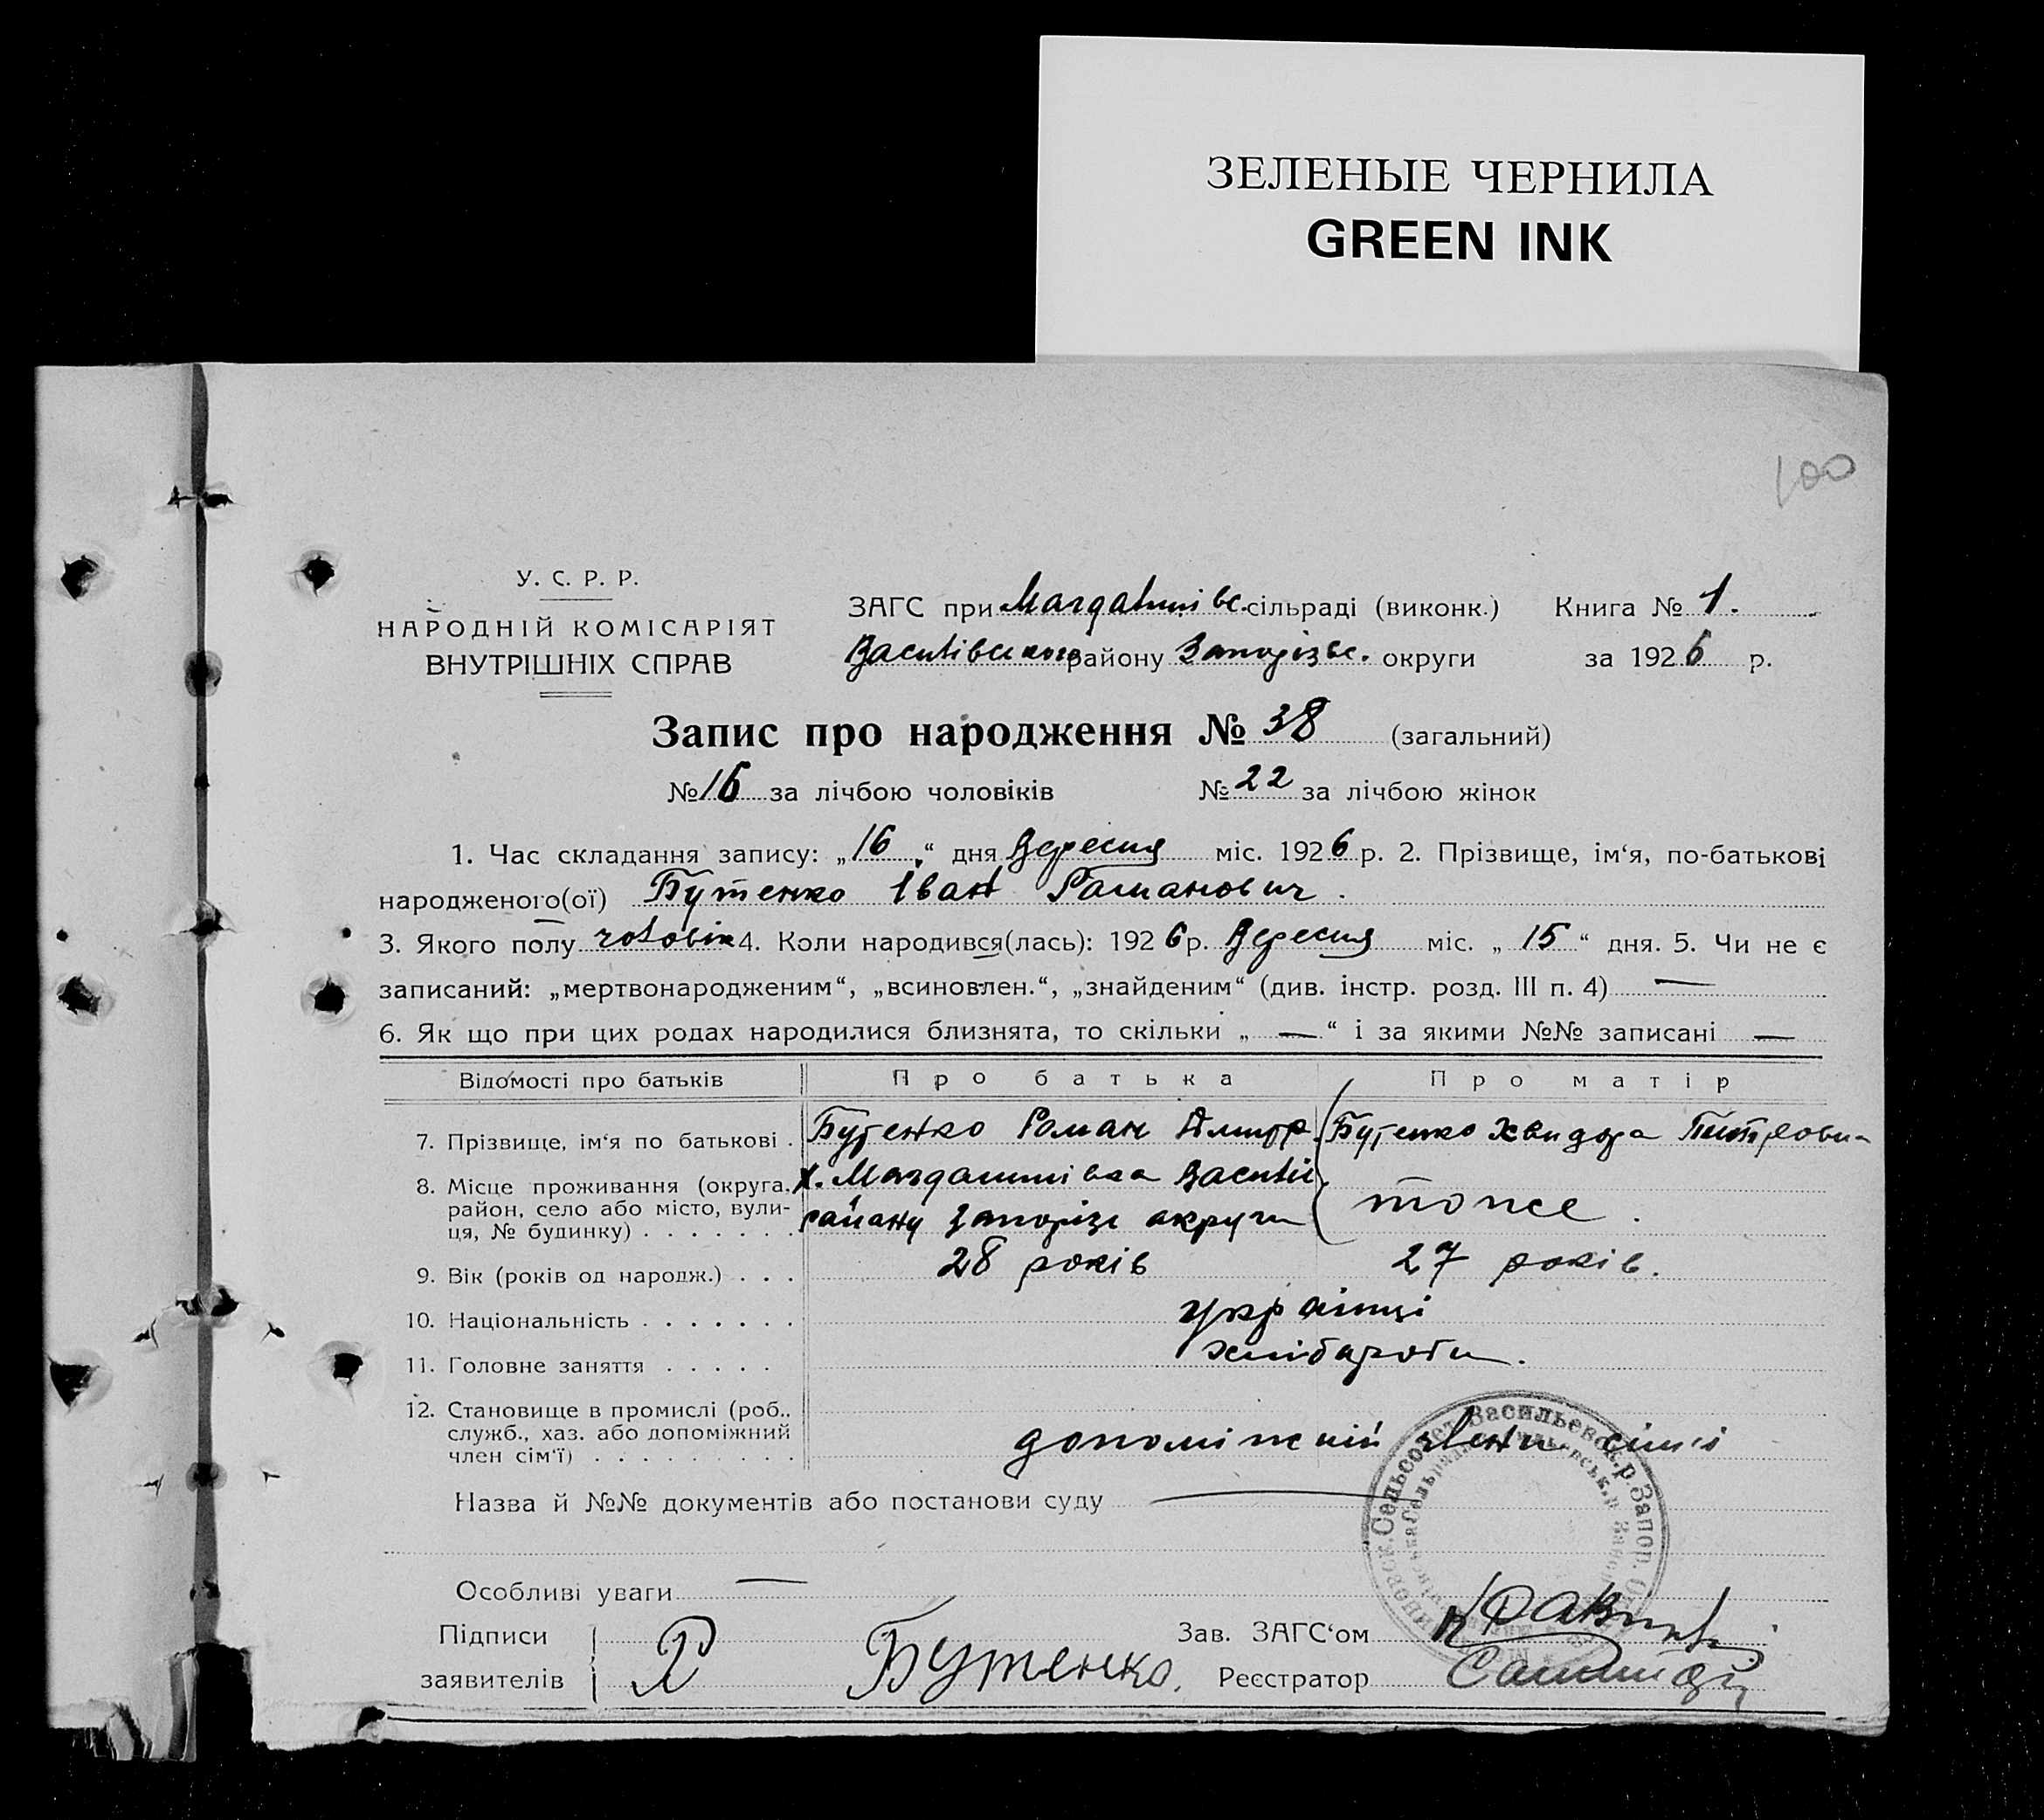 ЗЕЛЕНЫЕ ЧЕРНИЛА
GREEN INK
100
У. С. Р. Р.
НАРОДНІЙ КОМІСАРІЯТ
ВНУТРІШНІХ СПРАВ
ЗАГС при сільраді (виконк.) Книга № 1.
Василівського району Запорізьк. округи за 1926 р.
Запис про народження № 38 (загальний)
№ 16 за лічбою чоловіків № 22 за лічбою жінок
1. Час складання запису: „16“ дня Вересня міс. 1926 р. 2. Прізвище, ім‘я, по-батькові
народженого(ої) Бутенко Іван Романович.
3. Якого полу чоловік 4. Коли народився(лась): 1926 р. Вересня міс. „15“ дня. 5. Чи не є
записаний: „мертвонародженим“, „всиновлен.“, „знайденим“ (див. інстр. розд. III п. 4) —
6. Як що при цих родах народилися близнята, то скільки „—“ і за якими №№ записані —
Відомості про батьків Про батька Про матір
7. Прізвище, ім‘я по батькові . Бутенко Роман Дмитр. Бутенко Хвидора Питровн
8. Місце проживання (округа, район, село або місто, вулиця, № будинку) . . . . . . . х. Василів району Запорізк округи тоже.
9. Вік (років од народж.) . . . 28 років 27 років.
10. Національність . . . . . . . українці
11. Головне заняття . . . . . хлібороби.
12. Становище в промислі (роб., служб., хаз. або допоміжний член сім‘ї) . . . . . . . . . допоміжний член сімї
Назва й №№ документів або постанови суду —
Особливі уваги —
Підписи
заявителів Р Бутенко.
Зав. ЗАГС‘ом
Реєстратор
Сельсовет Васильевск. р. Запор.